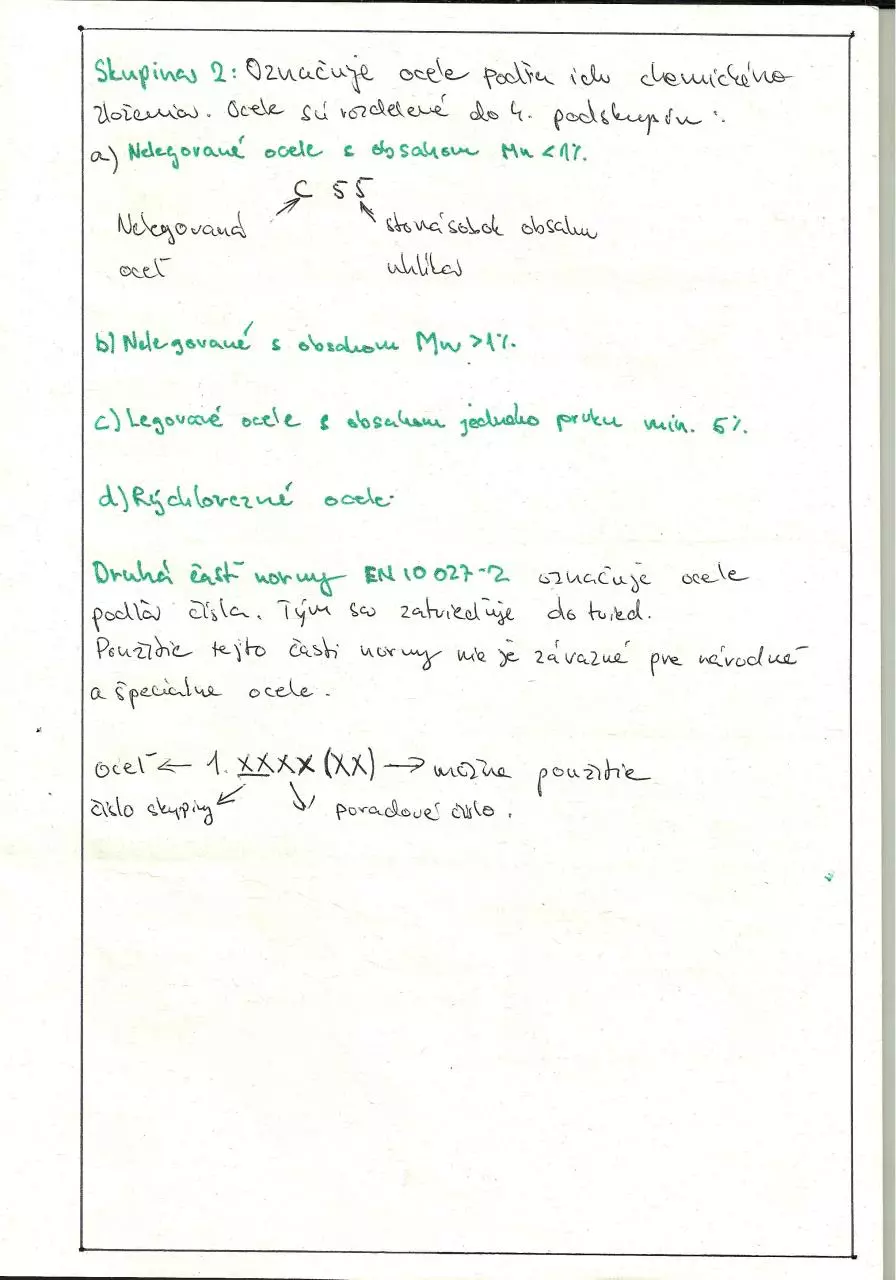 Skupina 2: Označuje ocele podľa ich chemického
zloženia. Ocele sú rozdelené do 4. podskupín:
a) Nelegované ocele s obsahom Mn < 1%.
C 55
Nelegovaná stonásobok obsahu
oceľ uhlíka
b) Nelegované s obsahom Mn > 1%.
c) Legované ocele s obsahom jedného prvku min. 5%.
d) Rýchlorezné ocele.
Druhá časť normy EN 10 027-2 označuje ocele
podľa čísla. Tým sa zatrieďuje do tried.
Použitie tejto časti normy nie je záväzné pre národné
a špeciálne ocele.
oceľ ← 1. XXXX (XX) → možné použitie
číslo skupiny poradové číslo.